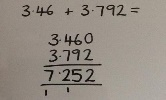 3·46 + 3·792 =
3·460
3·792
7·252
1 1